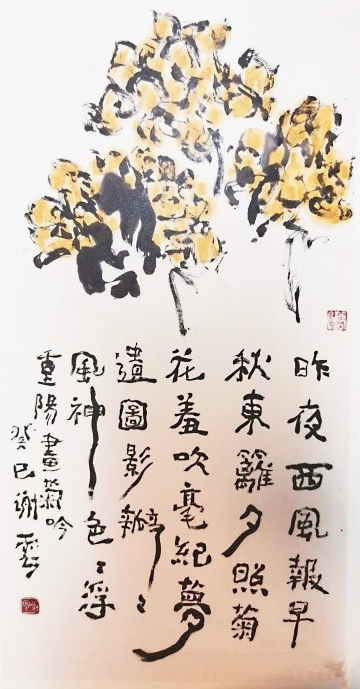 昨夜西風報早
秋東籬夕照菊
花羞吹毫紀夢
遺圖影瓣〻
風神色〻浮
重陽畫菊吟
癸巳謝雲